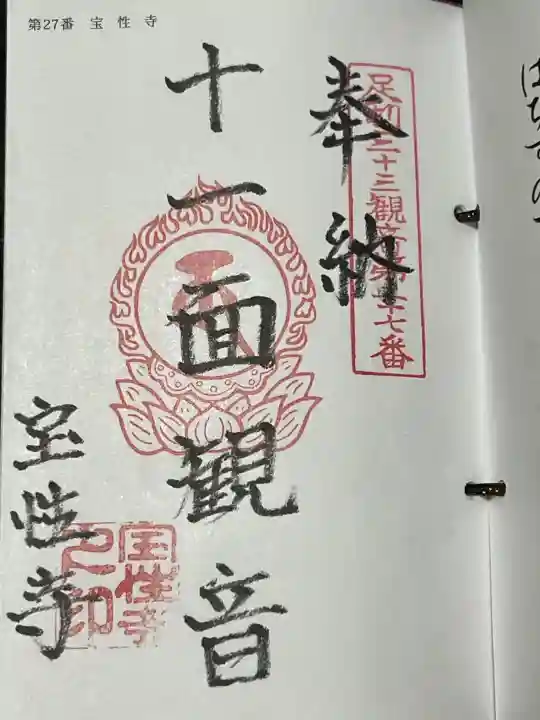 第27番 宝性寺
奉納
足利三十三観音第二十七番
十一面観音
宝性寺
宝性寺
之印